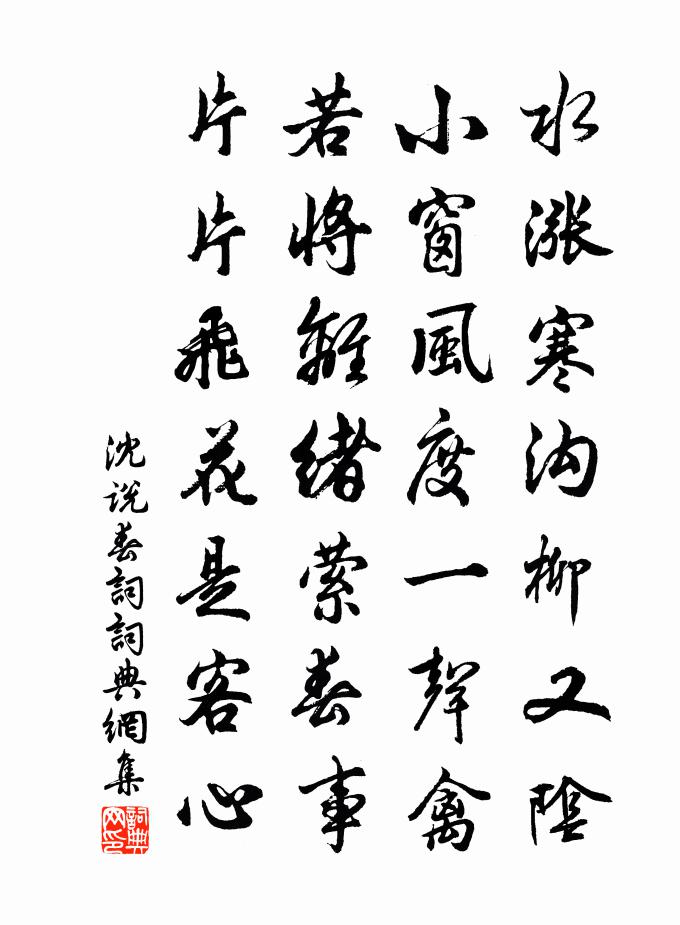 水漲寒沟柳又陰
小窗風度一聲禽
若將離緒縈春事
片片飛花是客心
沈说春詞詞典網集
詞典网印